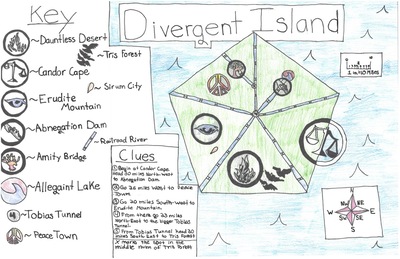 Key
Divergent Island
~Dauntless Desert
~Tris Forest
~Candor Cape
~Serum City
~Erudite Mountain
~Abnegation Dam
~Railroad River
~Amity Bridge
~Allegaint Lake
~Tobias Tunnel
~Peace Town
1 in=10 Miles
Clues
① Begin at Candor Cape.
Head 30 miles North-West
to Abnegation Dam
② Go 25 miles West to Peace
Town.
③ Go 20 miles South-West to
Erudite Mountain.
④ From there go 23 miles
North-East to the bigger Tobias
Tunnel.
⑤ From Tobias Tunnel head 30
miles South-East to Tris Forest
X marks the spot in the
middle of Tris Forest
N
NW NE
W E
SW SE
S